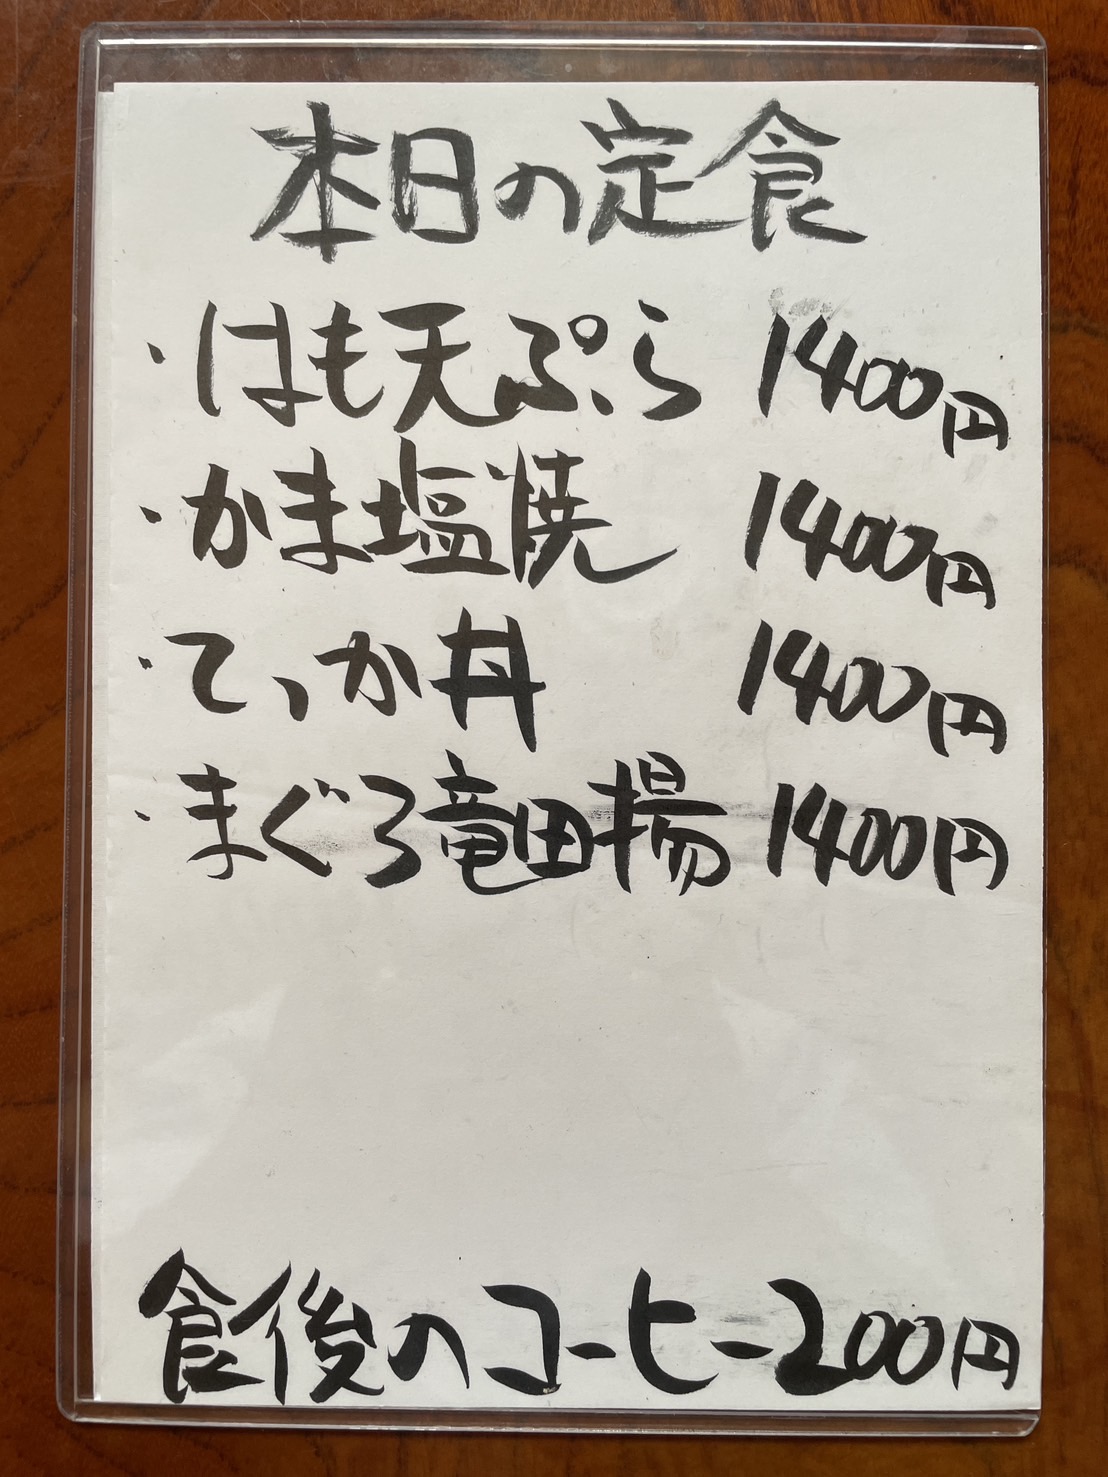 本日の定食
・はも天ぷら 1400円
・かま塩焼 1400円
・てっか丼 1400円
・まぐろ竜田揚 1400円
食後のコーヒー200円